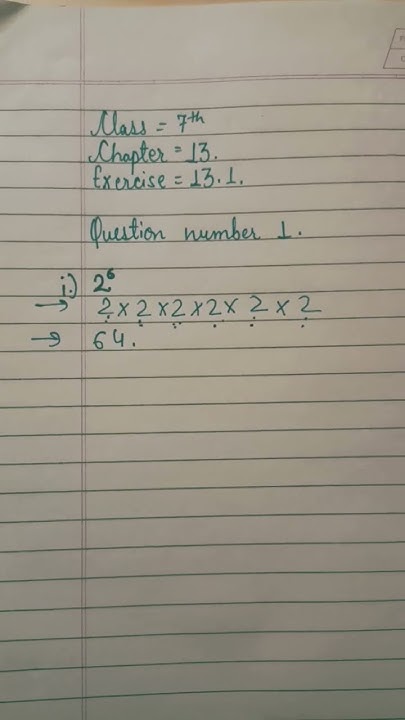 Class = 7th
Chapter = 13.
Exercise = 13.1.
Question number 1.
i.) 2⁶
→ 2 × 2 × 2 × 2 × 2 × 2
→ 64.